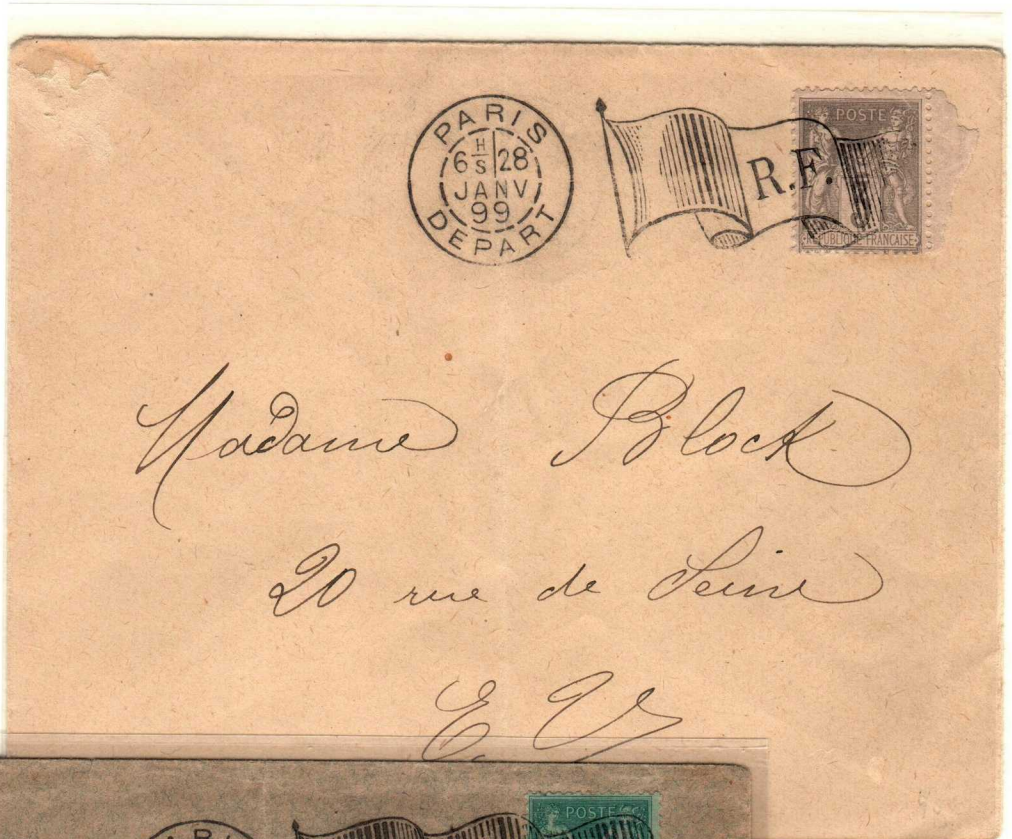 PARIS
6 H/S 28
JANV
99
DEPART
R.F.
POSTE
REPUBLIQUE FRANCAISE
Madame Block
20 rue de Seine
E. V.
POSTE